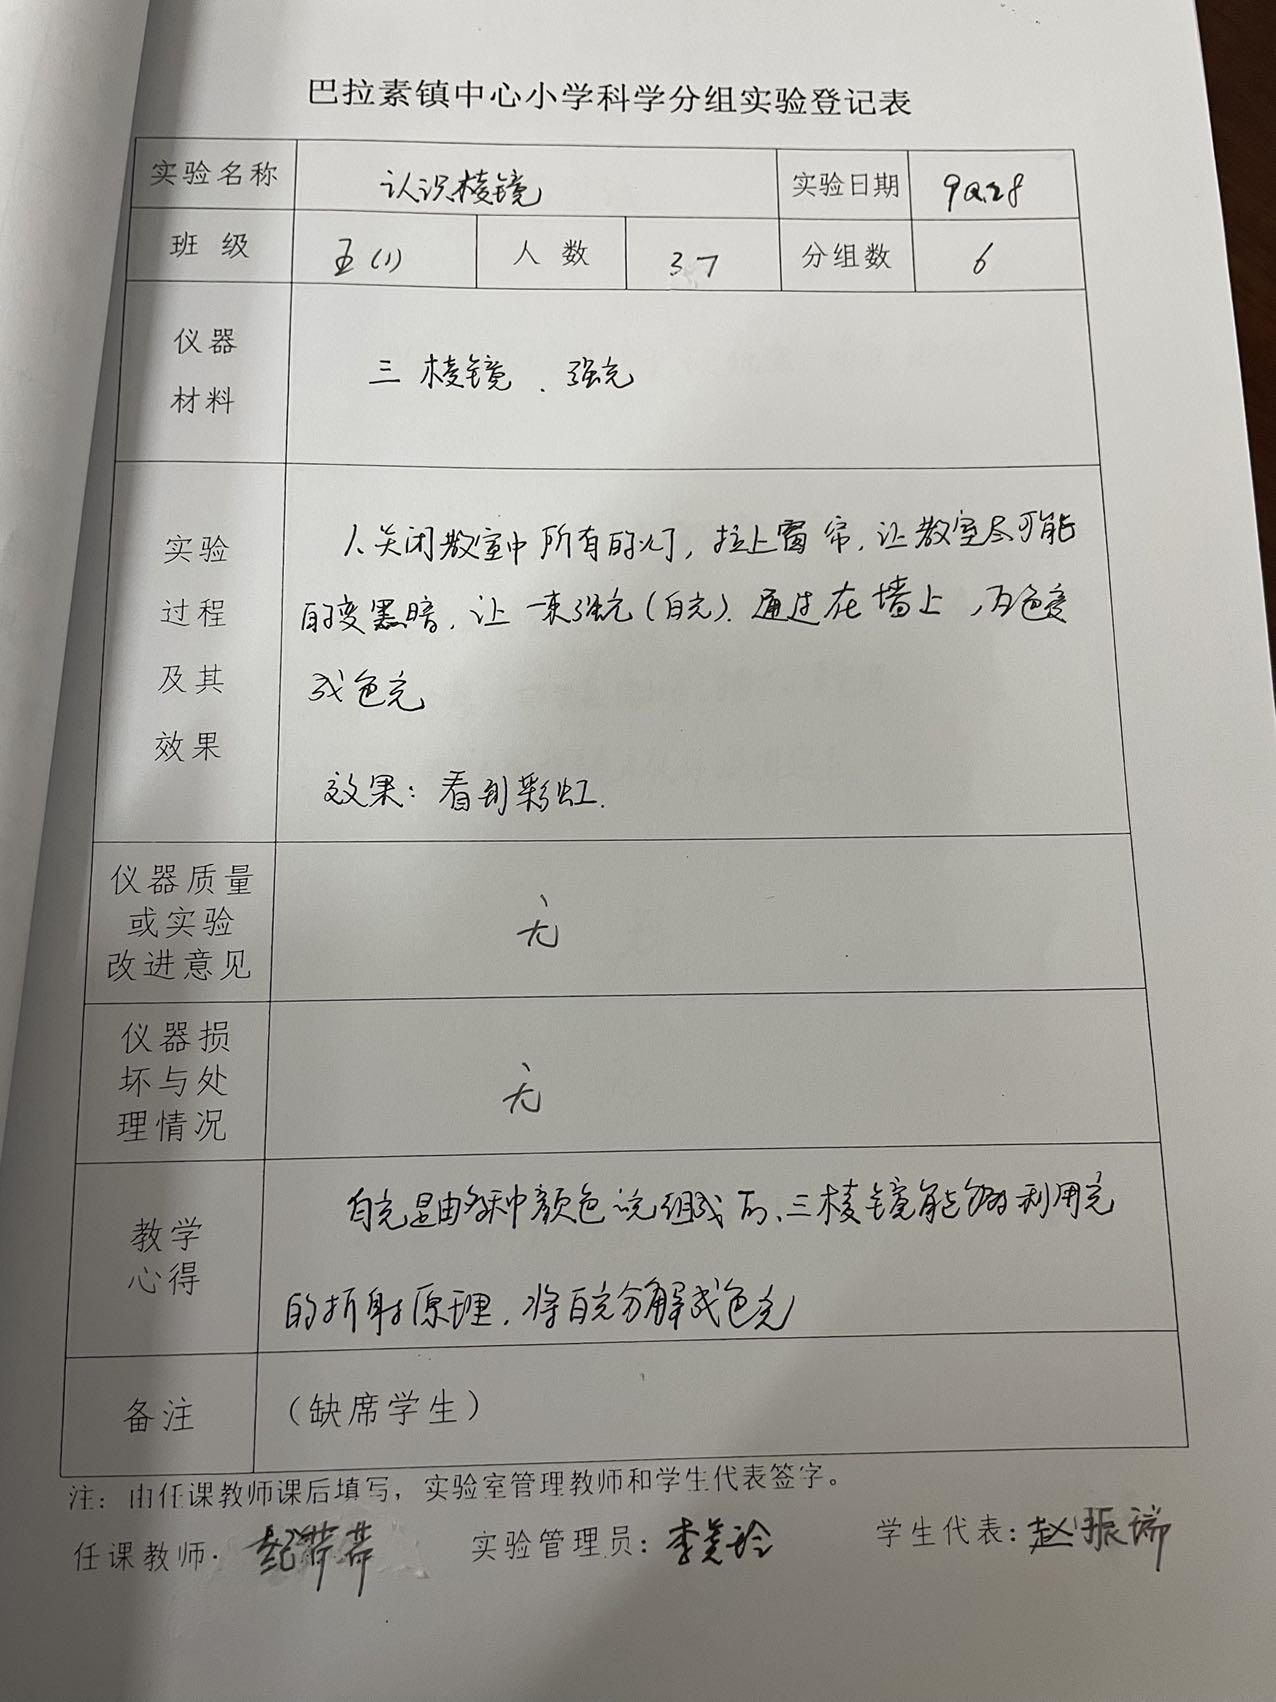 巴拉素镇中心小学科学分组实验登记表
实验名称 认识棱镜 实验日期 9.28
班 级 五(1) 人 数 37 分组数 6
仪器
材料
三棱镜、强光
实验
过程
及其
效果
1、关闭教室中所有的灯,拉上窗帘,让教室尽可能
的变黑暗,让一束强光(白光).通过在墙上,百色变
成色光
效果:看到彩虹.
仪器质量
或实验
改进意见
无
仪器损
坏与处
理情况
无
教学
心得
白光是由各种颜色光组成的、三棱镜能够利用光
的折射原理,将白光分解成色光
备注 (缺席学生)
注:由任课教师课后填写,实验室管理教师和学生代表签字。
任课教师: 实验管理员: 学生代表:赵振瑞